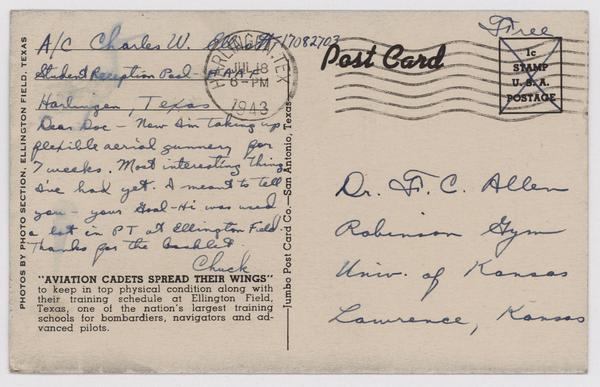 PHOTOS BY PHOTO SECTION, ELLINGTON FIELD, TEXAS
A/C Charles W. Elliott 17082703
Student Reception Pool - HAAF
Harlingen, Texas
Dear Doc - Now I'm taking up
flexible aerial gunnery for
7 weeks. Most interesting thing
I've had yet. I meant to tell
you - your Goal-Hi was used
a lot in PT at Ellington Field.
Thanks for the booklet.
Chuck
"AVIATION CADETS SPREAD THEIR WINGS"
to keep in top physical condition along with
their training schedule at Ellington Field,
Texas, one of the nation's largest training
schools for bombardiers, navigators and ad-
vanced pilots.
HARLINGEN, TEX.
JUL 18
6-PM
1943
Jumbo Post Card Co.—San Antonio, Texas
Post Card
Free
1c
STAMP
U. S. A.
POSTAGE
Dr. F. C. Allen
Robinson Gym
Univ. of Kansas
Lawrence, Kansas